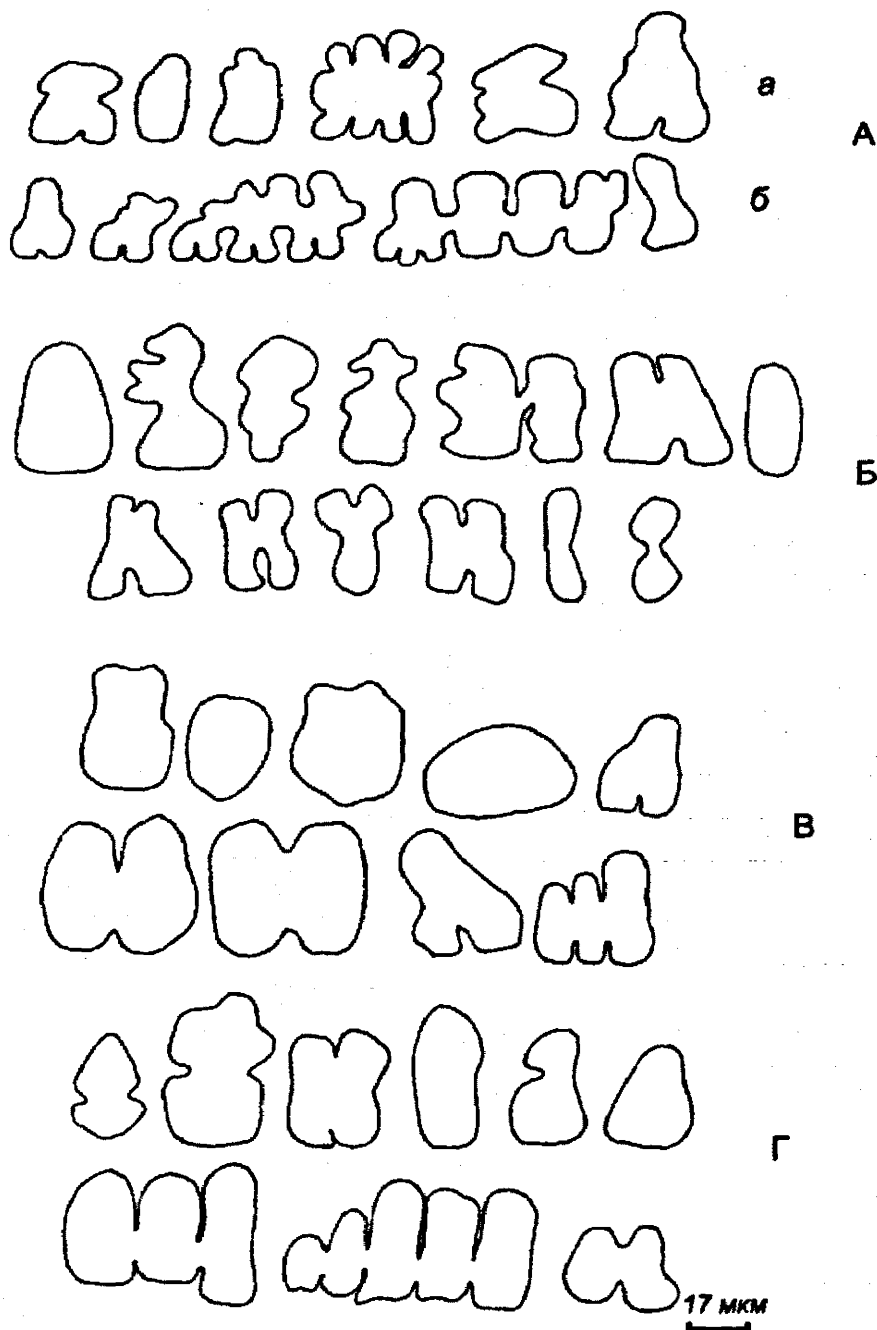 а
А
б
Б
В
Г
17 мкм